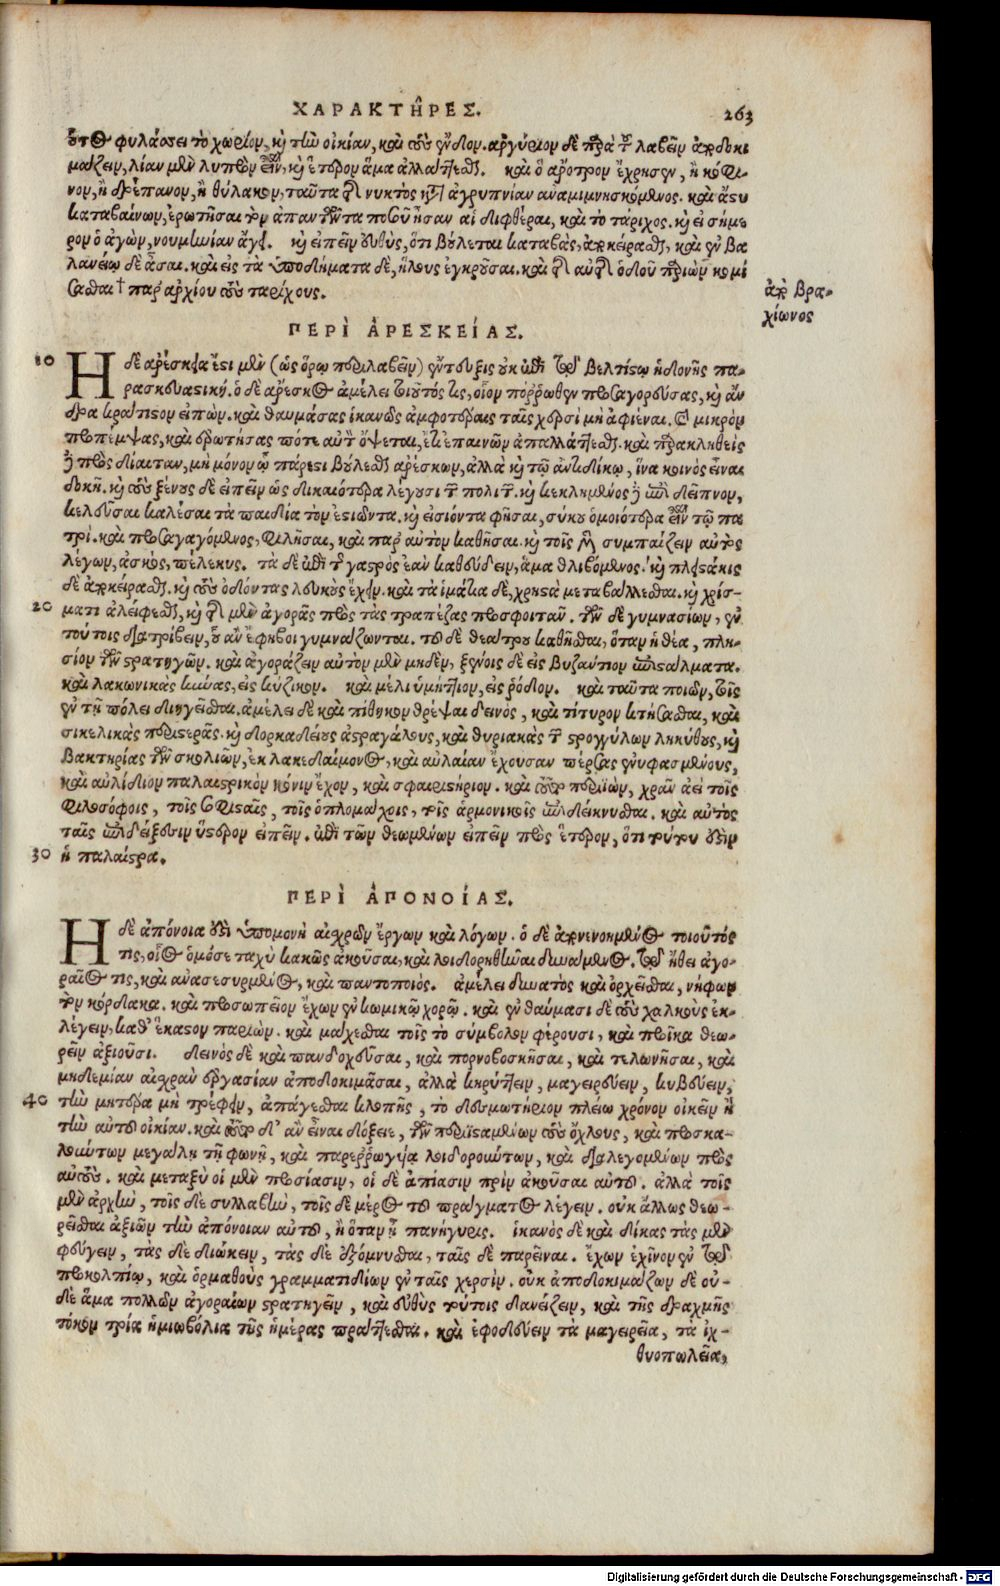 ΧΑΡΑΚΤῆΡΕΣ. 263
οὗτος φυλάσσει τὸ χωρίον, καὶ τὴν οἰκίαν, καὶ τοὺς ἔνδον. ἀργύριον δὲ παρὰ τ λαβεῖν ἀποδοκι
μάζειν, λίαν μὲν λυπρὸν εἶναι, καὶ ἕτερον ἅμα ἀλλάττεσθαι. καὶ ὁ ἄροτρον ἔχρησεν, ἢ κόφι-
νον, ἢ δρέπανον, ἢ θύλακον, ταῦτα τῆς νυκτὸς κατὰ ἀγρυπνίαν ἀναμιμνησκόμενος. καὶ ἄστυ
καταβαίνων, ἐρωτῆσαι τὸν ἀπαντῶντα πόσου ἦσαν αἱ διφθέραι, καὶ τὸ τάριχος. καὶ εἰ σήμε
ρον ὁ ἀγὼν, νουμηνίαν ἄγει. καὶ εἰπεῖν εὐθὺς, ὅτι βούλεται καταβὰς, ἀποκείρασθαι, καὶ ἐν βα
λανείῳ δὲ ᾆσαι. καὶ εἰς τὰ ὑποδήματα δὲ, ἥλους ἐγκροῦσαι. καὶ τῆς αὐτῆς ὁδοῦ παριὼν κομί
σασθαι † παρ' ἀρχίου τοὺς ταρίχους.
ἀπὸ βρα-
χίωνος
ΠΕΡῚ ἈΡΕΣΚΕΊΑΣ.
10 Η δὲ ἀρέσκεια ἔστι μὲν (ὡς ὅρῳ περιλαβεῖν) ἔντευξις οὐκ ἐπὶ τῷ βελτίστῳ ἡδονῆς πα-
ρασκευαστική. ὁ δὲ ἄρεσκος ἀμέλει τοιοῦτός τις, οἷον πόρρωθεν προσαγορεύσας, καὶ ἄν
δρα κράτιστον εἰπών. καὶ θαυμάσας ἱκανῶς ἀμφοτέραις ταῖς χερσὶ μὴ ἀφιέναι. καὶ μικρὸν
προπέμψας, καὶ ἐρωτήσας πότε αὐτὸν ὄψεται, ἔτι ἐπαινῶν ἀπαλλάττεσθαι. καὶ παρακληθεὶς
δὲ πρὸς δίαιταν, μὴ μόνον ᾧ πάρεστι βούλεσθαι ἀρέσκων, ἀλλὰ καὶ τῷ ἀντιδίκῳ, ἵνα κοινὸς εἶναι
δοκῇ. καὶ τοὺς ξένους δὲ εἰπεῖν ὡς δικαιότερα λέγουσι τῶν πολιτῶν. καὶ κεκλημένος δὲ ἐπὶ δεῖπνον,
κελεῦσαι καλέσαι τὰ παιδία τὸν ἑστιῶντα. καὶ εἰσιόντα φῆσαι, σύκου ὁμοιότερα εἶναι τῷ πα
τρί. καὶ προσαγαγόμενος, φιλῆσαι, καὶ παρ' αὐτὸν καθῆσαι. καὶ τοῖς μὲν συμπαίζειν αὐτὸς
λέγων, ἀσκὸς, πέλεκυς. τὰ δὲ ἐπὶ τῆς γαστρὸς ἐᾶν καθεύδειν, ἅμα θλιβόμενος. καὶ πλειστάκις
δὲ ἀποκείρασθαι, καὶ τοὺς ὀδόντας λευκοὺς ἔχειν. καὶ τὰ ἱμάτια δὲ, χρηστὰ μεταβάλλεσθαι. καὶ χρίσ-
20 ματι ἀλείφεσθαι, καὶ τῆς μὲν ἀγορᾶς πρὸς τὰς τραπέζας προσφοιτᾶν. τῶν δὲ γυμνασίων, ἐν
τούτοις διατρίβειν, οὗ ἂν ἔφηβοι γυμνάζωνται. τοῦ δὲ θεάτρου καθῆσθαι, ὅταν ᾖ θέα, πλη-
σίον τῶν στρατηγῶν. καὶ ἀγοράζειν αὐτὸν μὲν μηδὲν, ξένοις δὲ εἰς βυζάντιον ἐπιστάλματα.
καὶ λακωνικὰς κύνας, εἰς κύζικον. καὶ μέλι ὑμήττιον, εἰς ῥόδον. καὶ ταῦτα ποιῶν, τοῖς
ἐν τῇ πόλει διηγεῖσθαι. ἀμέλει δὲ καὶ πίθηκον θρέψαι δεινὸς, καὶ τίτυρον κτήσασθαι, καὶ
σικελικὰς περιστερᾶς. καὶ δορκαδείους ἀστραγάλους, καὶ θυριακὰς τῶν στρογγύλων ληκύθους, καὶ
βακτηρίας τῶν σκολιῶν, ἐκ λακεδαίμονος, καὶ αὐλαίαν ἔχουσαν πέρσας ἐνυφασμένους,
καὶ αὐλίδιον παλαιστρικὸν κόνιν ἔχον, καὶ σφαιριστήριον. καὶ τοῦτο περιϊὼν, χρᾶν ἀεὶ τοῖς
φιλοσόφοις, τοῖς σοφισταῖς, τοῖς ὁπλομάχοις, τοῖς ἁρμονικοῖς ἐπιδείκνυσθαι. καὶ αὐτὸς
ταῖς ἐπιδείξεσιν ὕστερον εἰπεῖν. ἐπὶ τῶν θεωμένων εἰπεῖν πρὸς ἕτερον, ὅτι τούτου ἐστὶν
30 ἡ παλαίστρα.
ΠΕΡῚ ἈΠΟΝΟΊΑΣ.
Η δὲ ἀπόνοια ἐστὶ ὑπομονὴ αἰσχρῶν ἔργων καὶ λόγων. ὁ δὲ ἀπονενοημένος τοιοῦτός
τις, οἷος ὀμόσαι ταχὺ κακῶς ἀκοῦσαι, καὶ λοιδορηθῆναι δυνάμενος. τῷ ἤθει ἀγο-
ραῖός τις, καὶ ἀνασεσυρμένος, καὶ παντοποιός. ἀμέλει δυνατὸς καὶ ὀρχεῖσθαι, νήφων
τὸν κόρδακα. καὶ προσωπεῖον ἔχων ἐν κωμικῷ χορῷ. καὶ ἐν θαύμασι δὲ τοὺς χαλκοὺς ἐκ-
λέγειν, καθ' ἕκαστον παριών. καὶ μάχεσθαι τοῖς τὸ σύμβολον φέρουσι, καὶ προῖκα θεω-
ρεῖν ἀξιοῦσι. δεινὸς δὲ καὶ πανδοχεῦσαι, καὶ πορνοβοσκῆσαι, καὶ τελωνῆσαι, καὶ
μηδεμίαν αἰσχρὰν ἐργασίαν ἀποδοκιμᾶσαι, ἀλλὰ κηρύττειν, μαγειρεύειν, κυβεύειν,
40 τὴν μητέρα μὴ τρέφειν, ἀπάγεσθαι κλοπῆς, τὸ δεσμωτήριον πλείω χρόνον οἰκεῖν ἢ
τὴν αὑτοῦ οἰκίαν. καὶ τοῦτο δ' ἂν εἶναι δόξειε, τῶν περιϊσταμένων τοὺς ὄχλους, καὶ προσκα-
λούντων μεγάλῃ τῇ φωνῇ, καὶ παρερρωγυίᾳ λοιδορούντων, καὶ διαλεγομένων πρὸς
αὐτούς. καὶ μεταξὺ οἱ μὲν προσίασιν, οἱ δὲ ἀπίασιν πρὶν ἀκοῦσαι αὐτοῦ. ἀλλὰ τοῖς
μὲν ἀρχὴν, τοῖς δὲ συλλαβὴν, τοῖς δὲ μέρος τοῦ πράγματος λέγειν. οὐκ ἄλλως θεω-
ρεῖσθαι ἀξιῶν τὴν ἀπόνοιαν αὐτοῦ, ἢ ὅταν ᾖ πανήγυρις. ἱκανὸς δὲ καὶ δίκας τὰς μὲν
φεύγειν, τὰς δὲ διώκειν, τὰς δὲ ἐξόμνυσθαι, ταῖς δὲ παρεῖναι. ἔχων ἐχῖνον ἐν τῷ
προκολπίῳ, καὶ ὁρμαθοὺς γραμματιδίων ἐν ταῖς χερσίν. οὐκ ἀποδοκιμάζων δὲ οὐ-
δὲ ἅμα πολλῶν ἀγοραίων στρατηγεῖν, καὶ εὐθὺς τούτοις δανείζειν, καὶ τῆς δραχμῆς
τόκον τρία ἡμιωβόλια τῆς ἡμέρας πράττεσθαι. καὶ ἐφοδεύειν τὰ μαγειρεῖα, τὰ ἰχ-
θυοπωλεῖα,
Digitalisierung gefördert durch die Deutsche Forschungsgemeinschaft - DFG